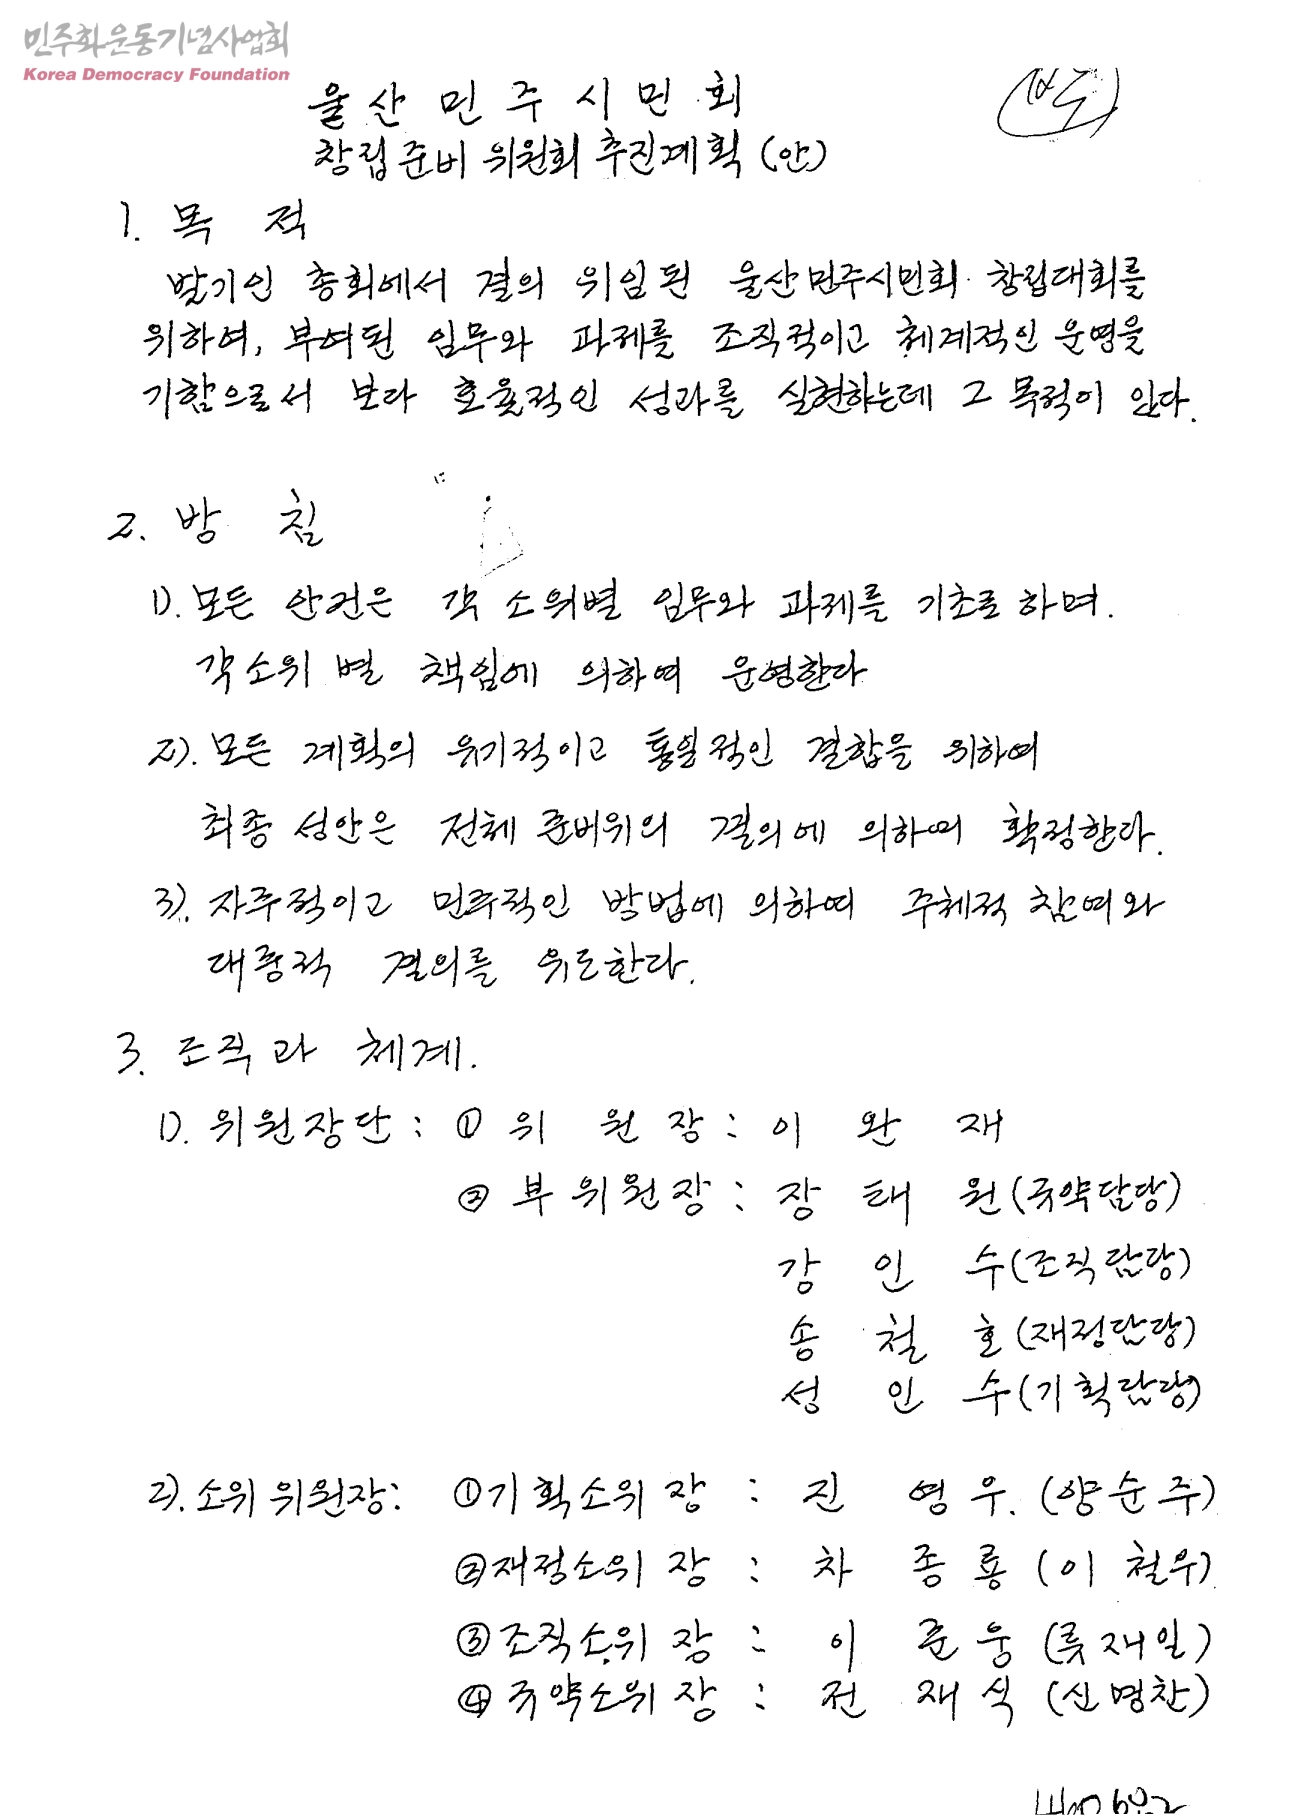 민주화운동기념사업회
Korea Democracy Foundation
울산민주시민회
창립준비위원회 추진계획(안)
1. 목 적
발기인 총회에서 결의 위임된 울산민주시민회 창립대회를
위하여, 부여된 임무와 과제를 조직적이고 체계적인 운영을
기함으로서 보다 효율적인 성과를 실현하는데 그 목적이 있다.
2. 방 침
1). 모든 안건은 각 소위별 임무와 과제를 기초로 하며.
각소위 별 책임에 의하여 운영한다
2). 모든 계획의 유기적이고 통일적인 결합을 위하여
최종 성안은 전체 준비위의 결의에 의하여 확정한다.
3). 자주적이고 민주적인 방법에 의하여 주체적 참여와
대중적 결의를 유도한다.
3. 조직과 체계.
1). 위원장단 : ① 위 원 장 : 이 완 재
② 부 위 원 장 : 장 태 원(규약담당)
강 인 수(조직담당)
송 철 호(재정담당)
성 인 수(기획담당)
2). 소위 위원장: ①기획소위 장 : 진 영 우. (양순주)
②재정소위 장 : 차 종 룡 (이 철우)
③조직소위 장 : 이 준 웅 (류재일)
④규약소위 장 : 전 재 식 (신명찬)